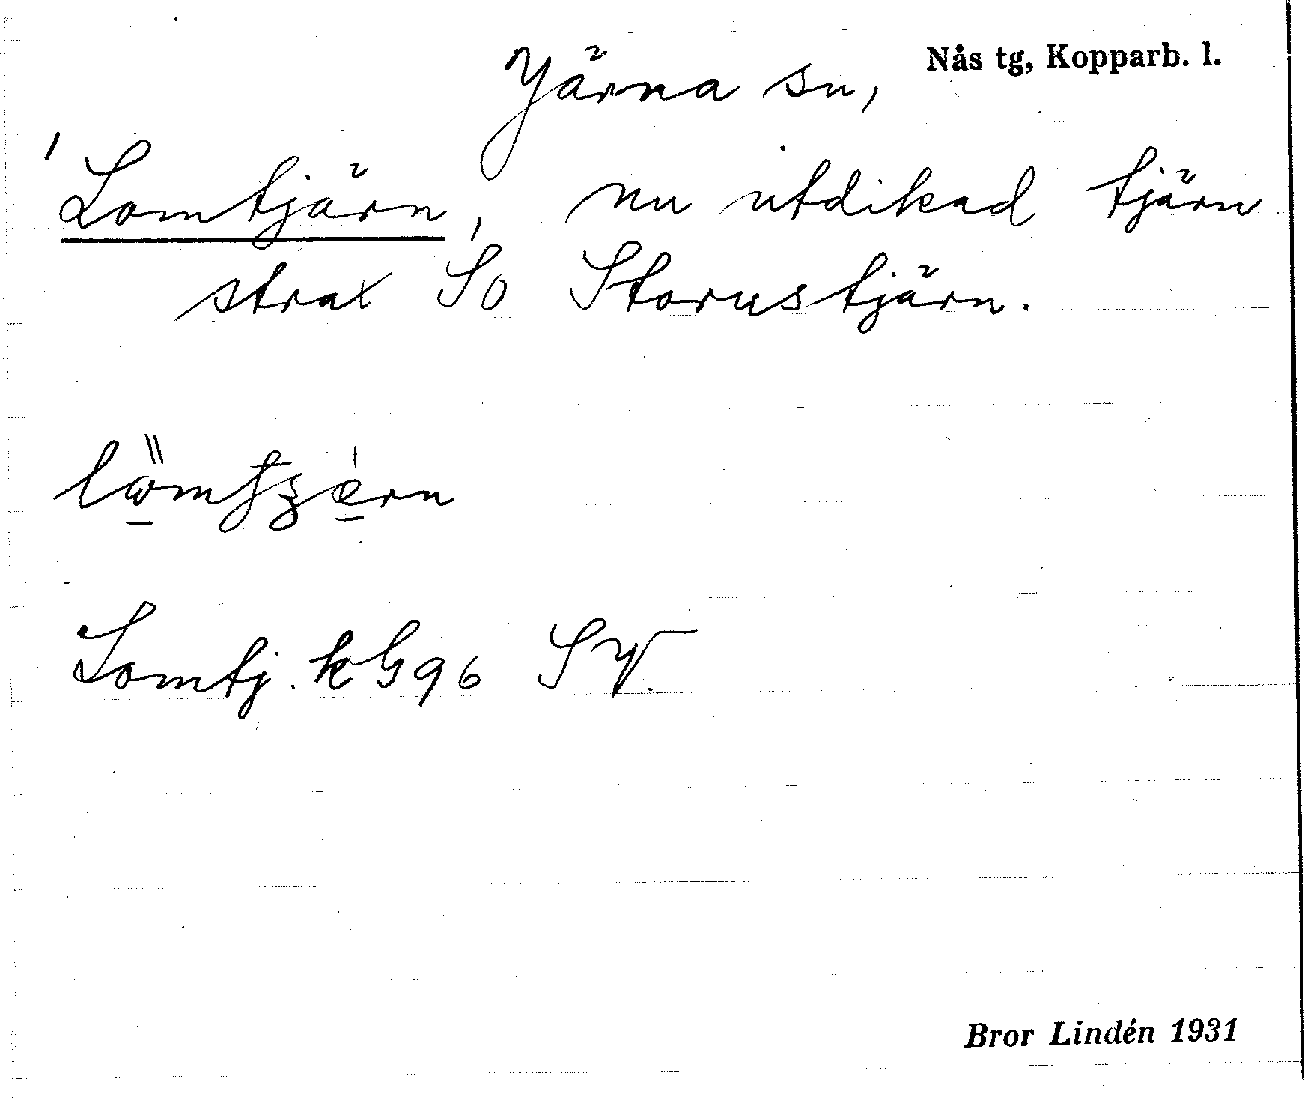 Järna sn, Nås tg, Kopparb. l.
' Lomtjärn, nu utdikad tjärn
strax So Storustjärn.
Lomtj. k G 96 SV.
Bror Lindén 1931